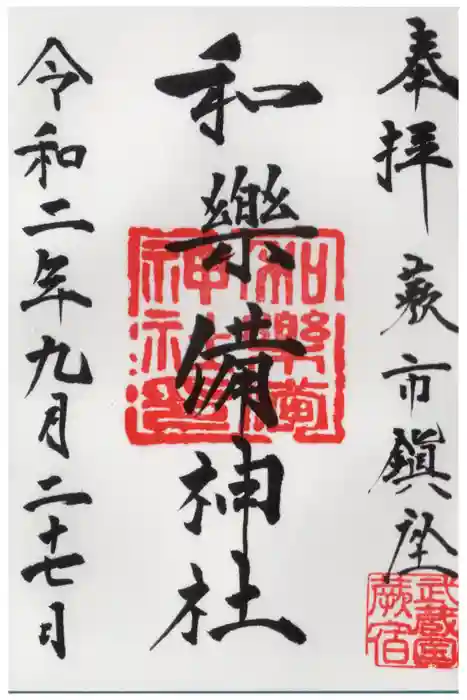 奉拝 蕨市鎮座
和樂備神社
令和二年九月二十七日
和樂備神社
武蔵国
蕨宿